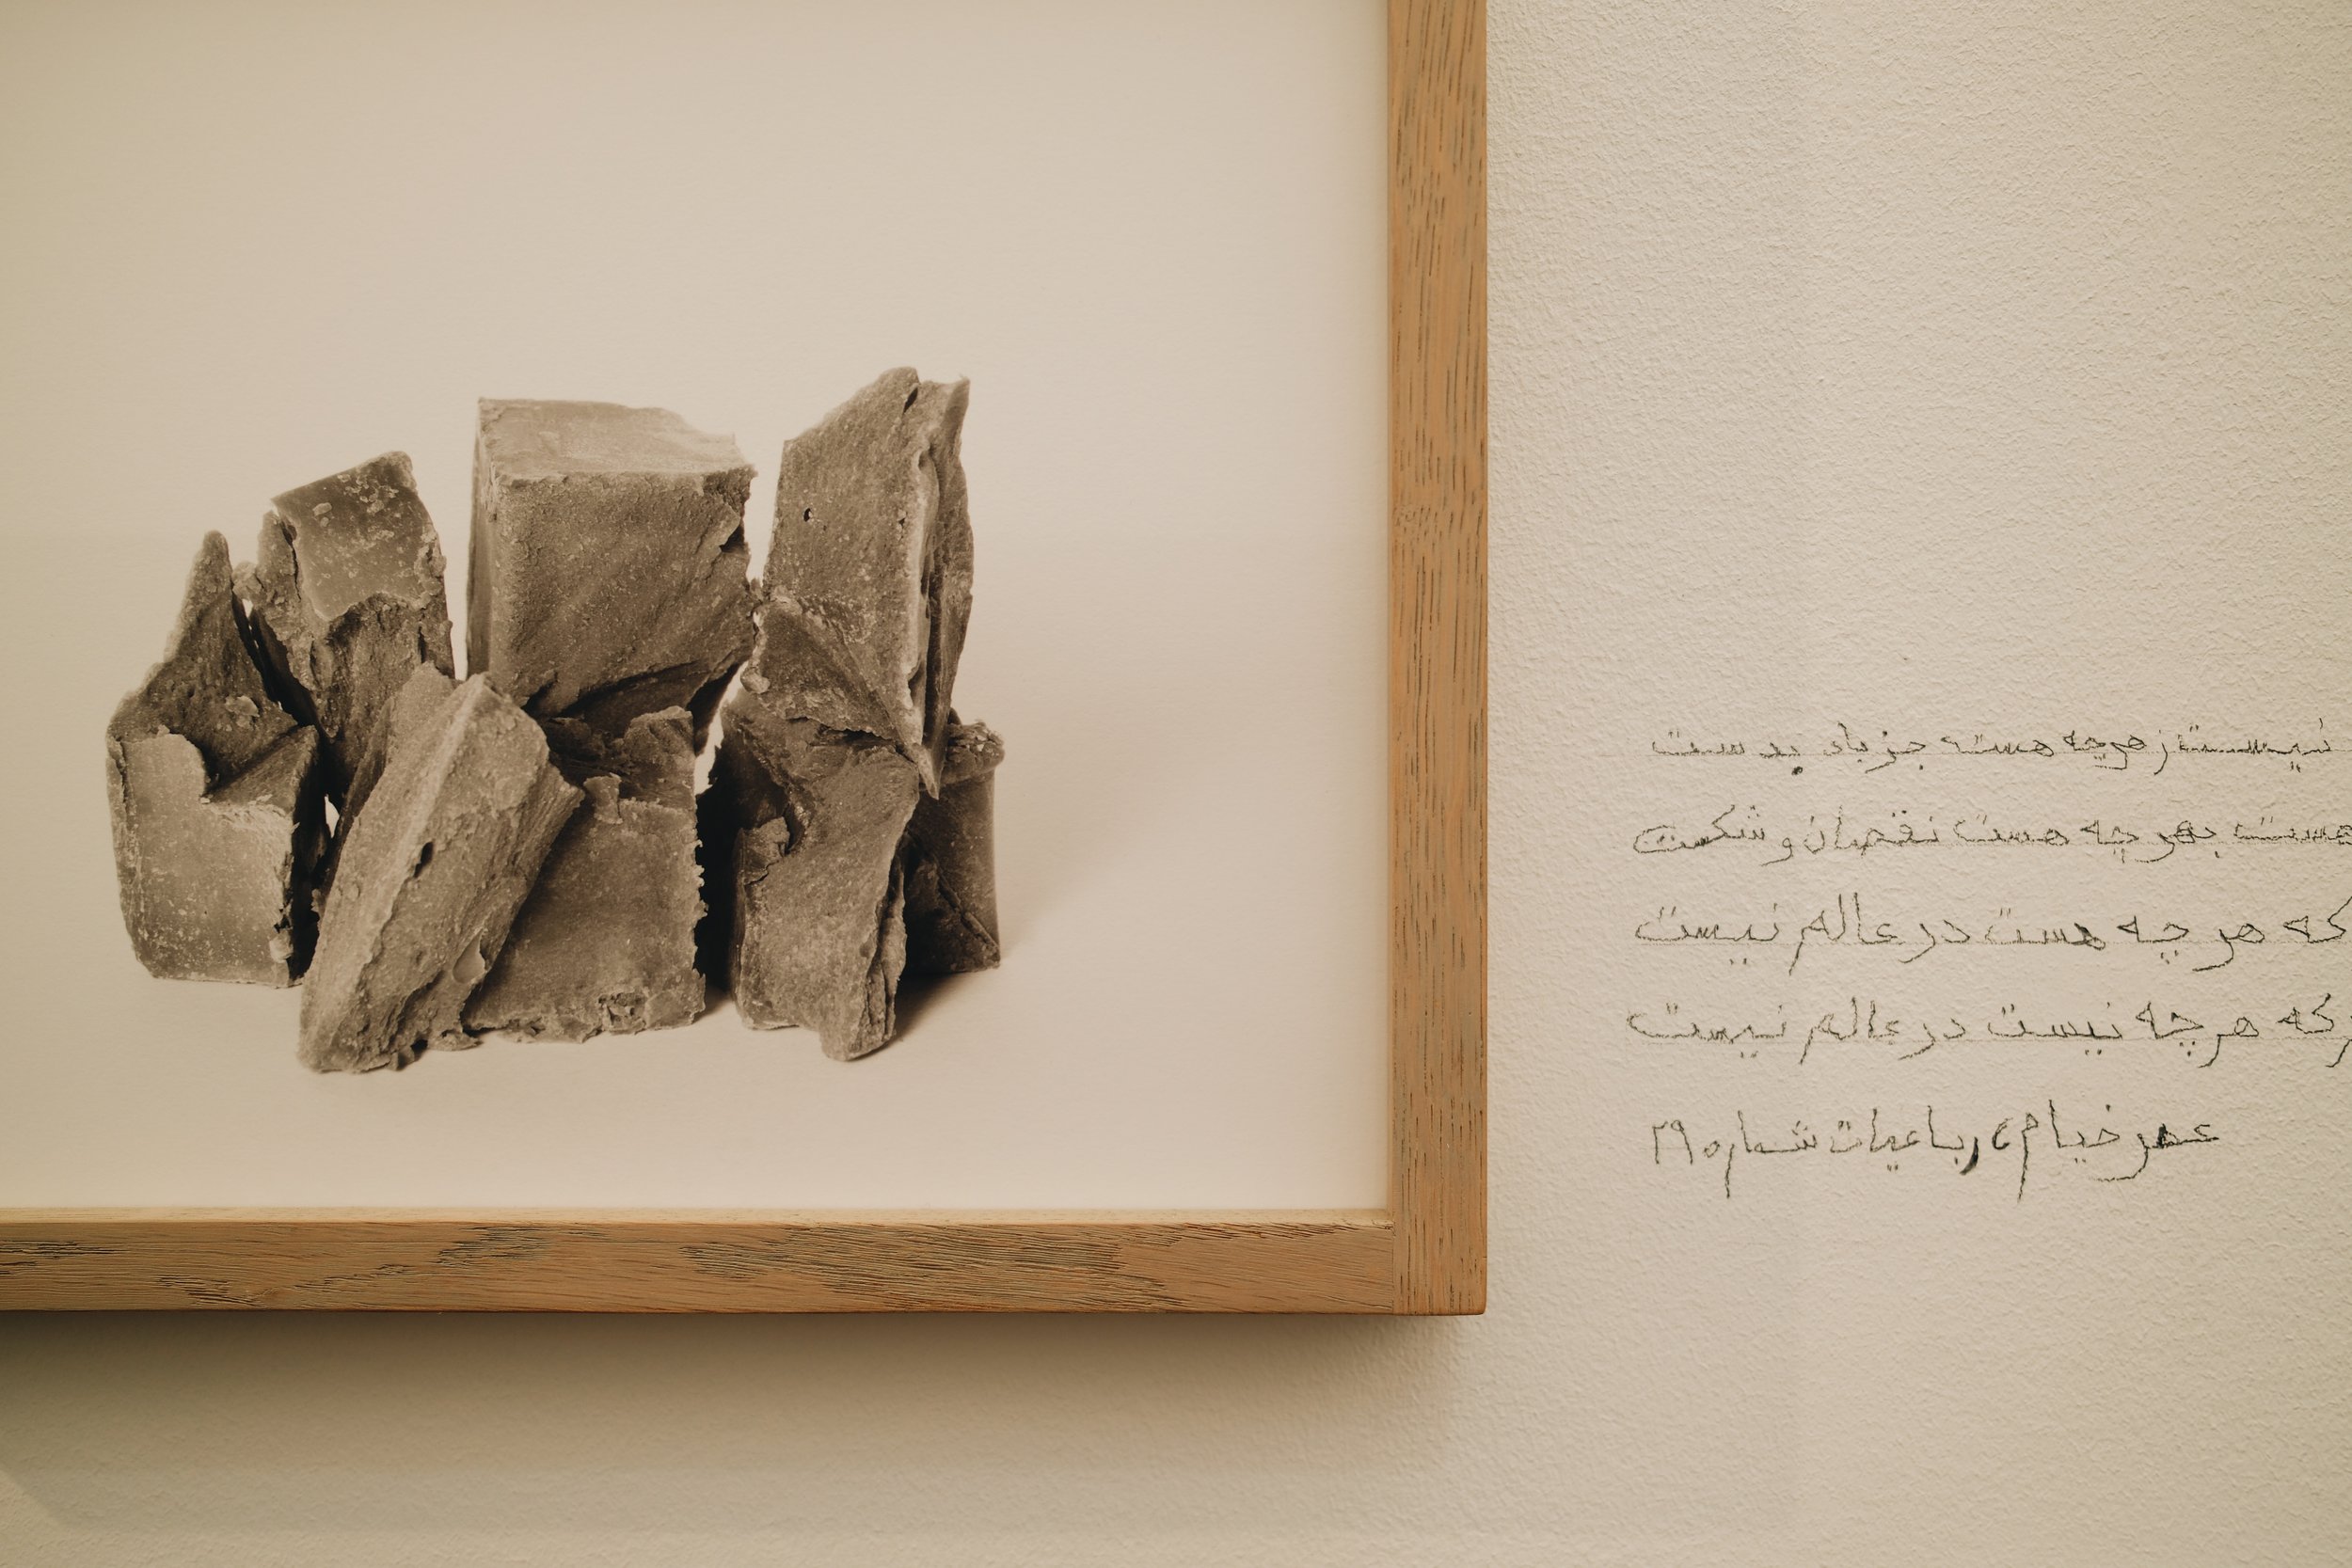 نیست ز هرچه هست جز باد بدست
هست بهرچه هست نقصان و شکست
که هرچه هست در عالم نیست
که هرچه نیست در عالم نیست
عمر خیام، رباعیات شماره ۲۹